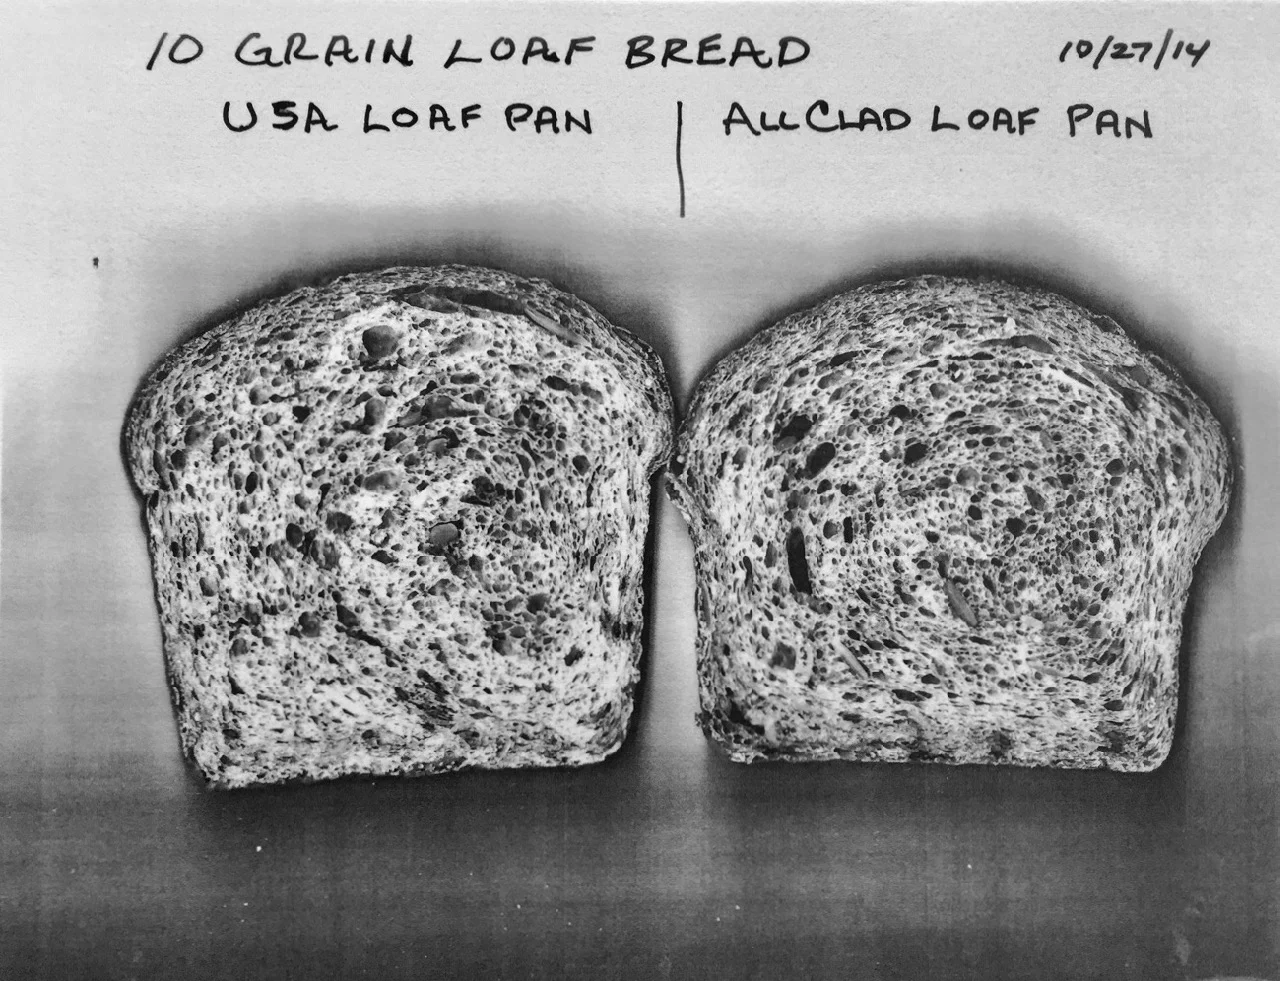 10 GRAIN LOAF BREAD 10/27/14
USA LOAF PAN | ALLCLAD LOAF PAN